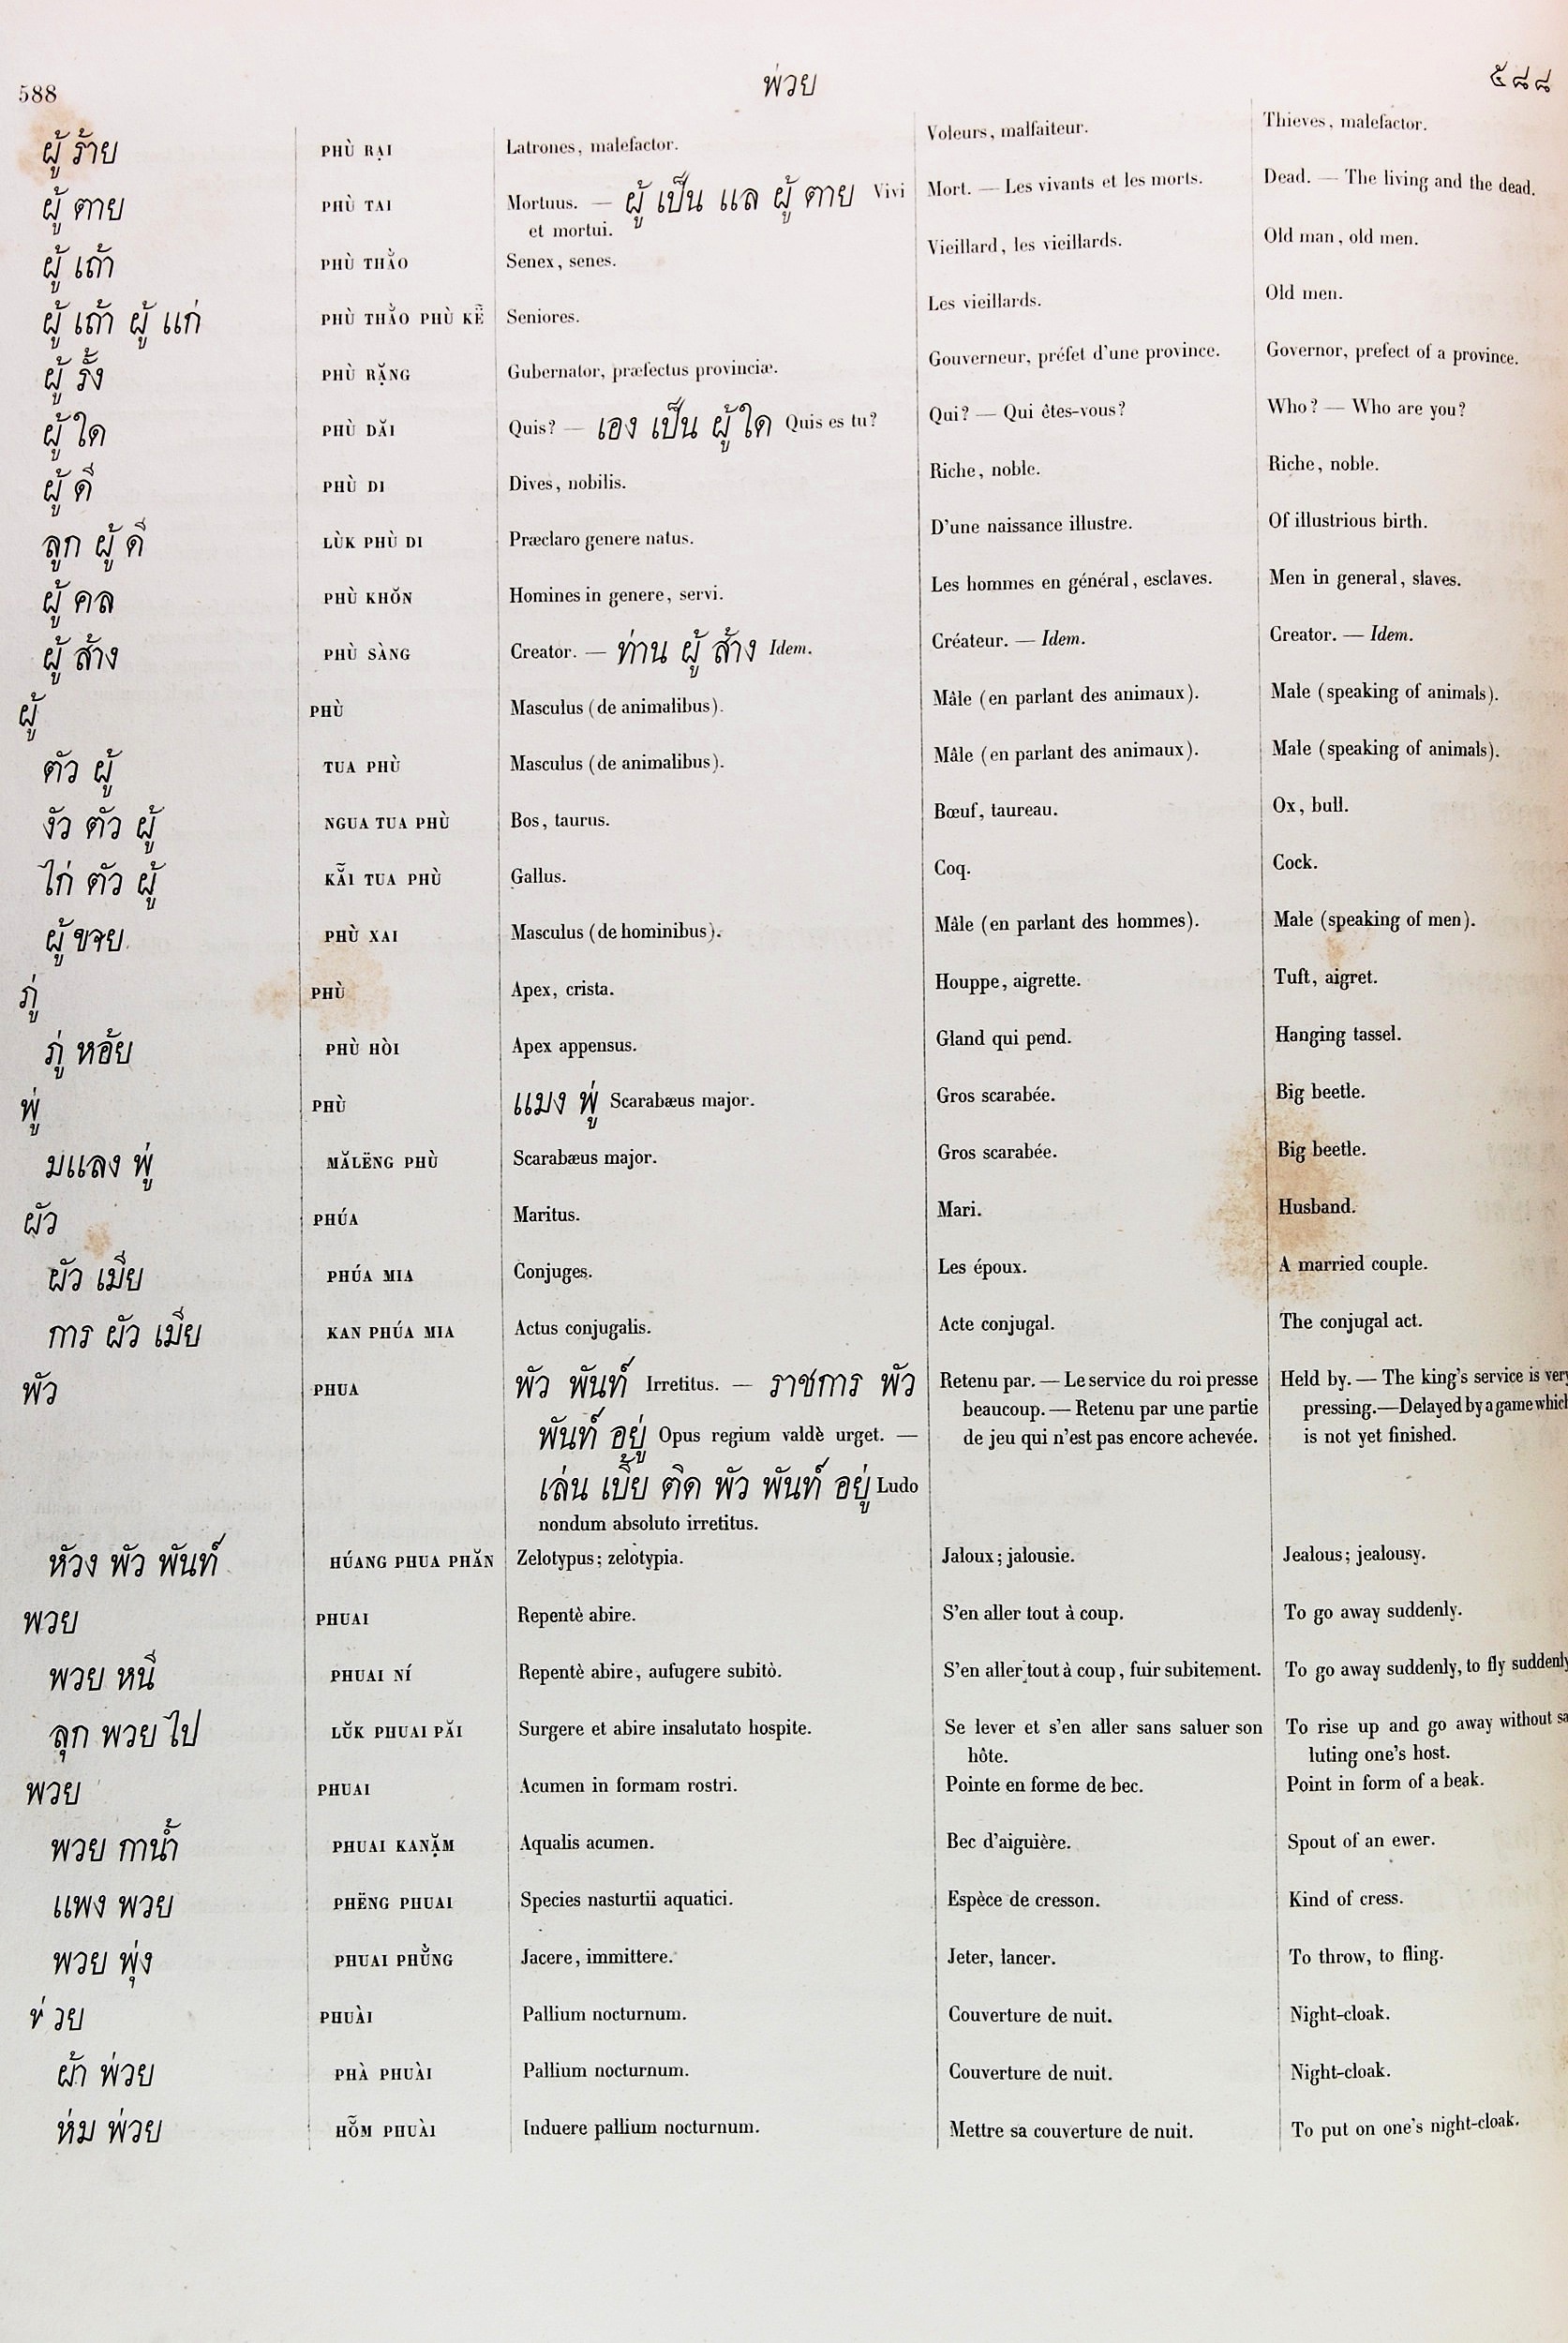 588 พ่วย ๕๘๘
ผู้ ร้าย PHÙ RẠI Latrones, malefactor. Voleurs, malfaiteur. Thieves, malefactor.
ผู้ ตาย PHÙ TAI Mortuus. — ผู้ เป็น แล ผู้ ตาย Vivi Mort. — Les vivants et les morts. Dead. — The living and the dead.
et mortui.
ผู้ เถ้า PHÙ THẰO Senex, senes. Vieillard, les vieillards. Old man, old men.
ผู้ เถ้า ผู้ แก่ PHÙ THẰO PHÙ KË̀ Seniores. Les vieillards. Old men.
ผู้ รั้ง PHÙ RẶNG Gubernator, præfectus provinciæ. Gouverneur, préfet d'une province. Governor, prefect of a province.
ผู้ ใด PHÙ DĂI Quis? — เอง เป็น ผู้ ใด Quis es tu? Qui? — Qui êtes-vous? Who? — Who are you?
ผู้ ดี PHÙ DI Dives, nobilis. Riche, noble. Riche, noble.
ลูก ผู้ ดี LÙK PHÙ DI Præclaro genere natus. D'une naissance illustre. Of illustrious birth.
ผู้ คล PHÙ KHŎN Homines in genere, servi. Les hommes en général, esclaves. Men in general, slaves.
ผู้ ส้าง PHÙ SÀNG Creator. — ท่าน ผู้ ส้าง Idem. Créateur. — Idem. Creator. — Idem.
ผู้ PHÙ Masculus (de animalibus). Mâle (en parlant des animaux). Male (speaking of animals).
ตัว ผู้ TUA PHÙ Masculus (de animalibus). Mâle (en parlant des animaux). Male (speaking of animals).
งัว ตัว ผู้ NGUA TUA PHÙ Bos, taurus. Bœuf, taureau. Ox, bull.
ไก่ ตัว ผู้ KẴI TUA PHÙ Gallus. Coq. Cock.
ผู้ ชาย PHÙ XAI Masculus (de hominibus). Mâle (en parlant des hommes). Male (speaking of men).
ภู่ PHÙ Apex, crista. Houppe, aigrette. Tuft, aigret.
ภู่ หอ้ย PHÙ HÒI Apex appensus. Gland qui pend. Hanging tassel.
พู่ PHÙ แมง พู่ Scarabæus major. Gros scarabée. Big beetle.
มแลง พู่ MĂLËNG PHÙ Scarabæus major. Gros scarabée. Big beetle.
ผัว PHÚA Maritus. Mari. Husband.
ผัว เมีย PHÚA MIA Conjuges. Les époux. A married couple.
การ ผัว เมีย KAN PHÚA MIA Actus conjugalis. Acte conjugal. The conjugal act.
พัว PHUA พัว พันท์ Irretitus. — ราชการ พัว Retenu par. — Le service du roi presse Held by. — The king's service is very
พันท์ อยู่ Opus regium valdè urget. — beaucoup. — Retenu par une partie pressing.—Delayed by a game which
เล่น เบี้ย ติด พัว พันท์ อยู่ Ludo de jeu qui n'est pas encore achevée. is not yet finished.
nondum absoluto irretitus.
หัวง พัว พันท์ HÚANG PHUA PHĂN Zelotypus; zelotypia. Jaloux; jalousie. Jealous; jealousy.
พวย PHUAI Repentè abire. S'en aller tout à coup. To go away suddenly.
พวย หนี PHUAI NÍ Repentè abire, aufugere subitò. S'en aller tout à coup, fuir subitement. To go away suddenly, to fly suddenly
ลุก พวย ไป LŬK PHUAI PĂI Surgere et abire insalutato hospite. Se lever et s'en aller sans saluer son To rise up and go away without sa
hôte. luting one's host.
พวย PHUAI Acumen in formam rostri. Pointe en forme de bec. Point in form of a beak.
พวย กาน้ำ PHUAI KANẶM Aqualis acumen. Bec d'aiguière. Spout of an ewer.
แพง พวย PHËNG PHUAI Species nasturtii aquatici. Espèce de cresson. Kind of cress.
พวย พุ่ง PHUAI PHŬ̀NG Jacere, immittere. Jeter, lancer. To throw, to fling.
พ่วย PHUÀI Pallium nocturnum. Couverture de nuit. Night-cloak.
ผ้า พ่วย PHÀ PHUÀI Pallium nocturnum. Couverture de nuit. Night-cloak.
ห่ม พ่วย HỖM PHUÀI Induere pallium nocturnum. Mettre sa couverture de nuit. To put on one's night-cloak.